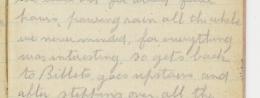 hours, pouring rain all the while
we never minded, for everything
was interesting, so gets back
to Billets, goes upstairs, and
after stepping over all the